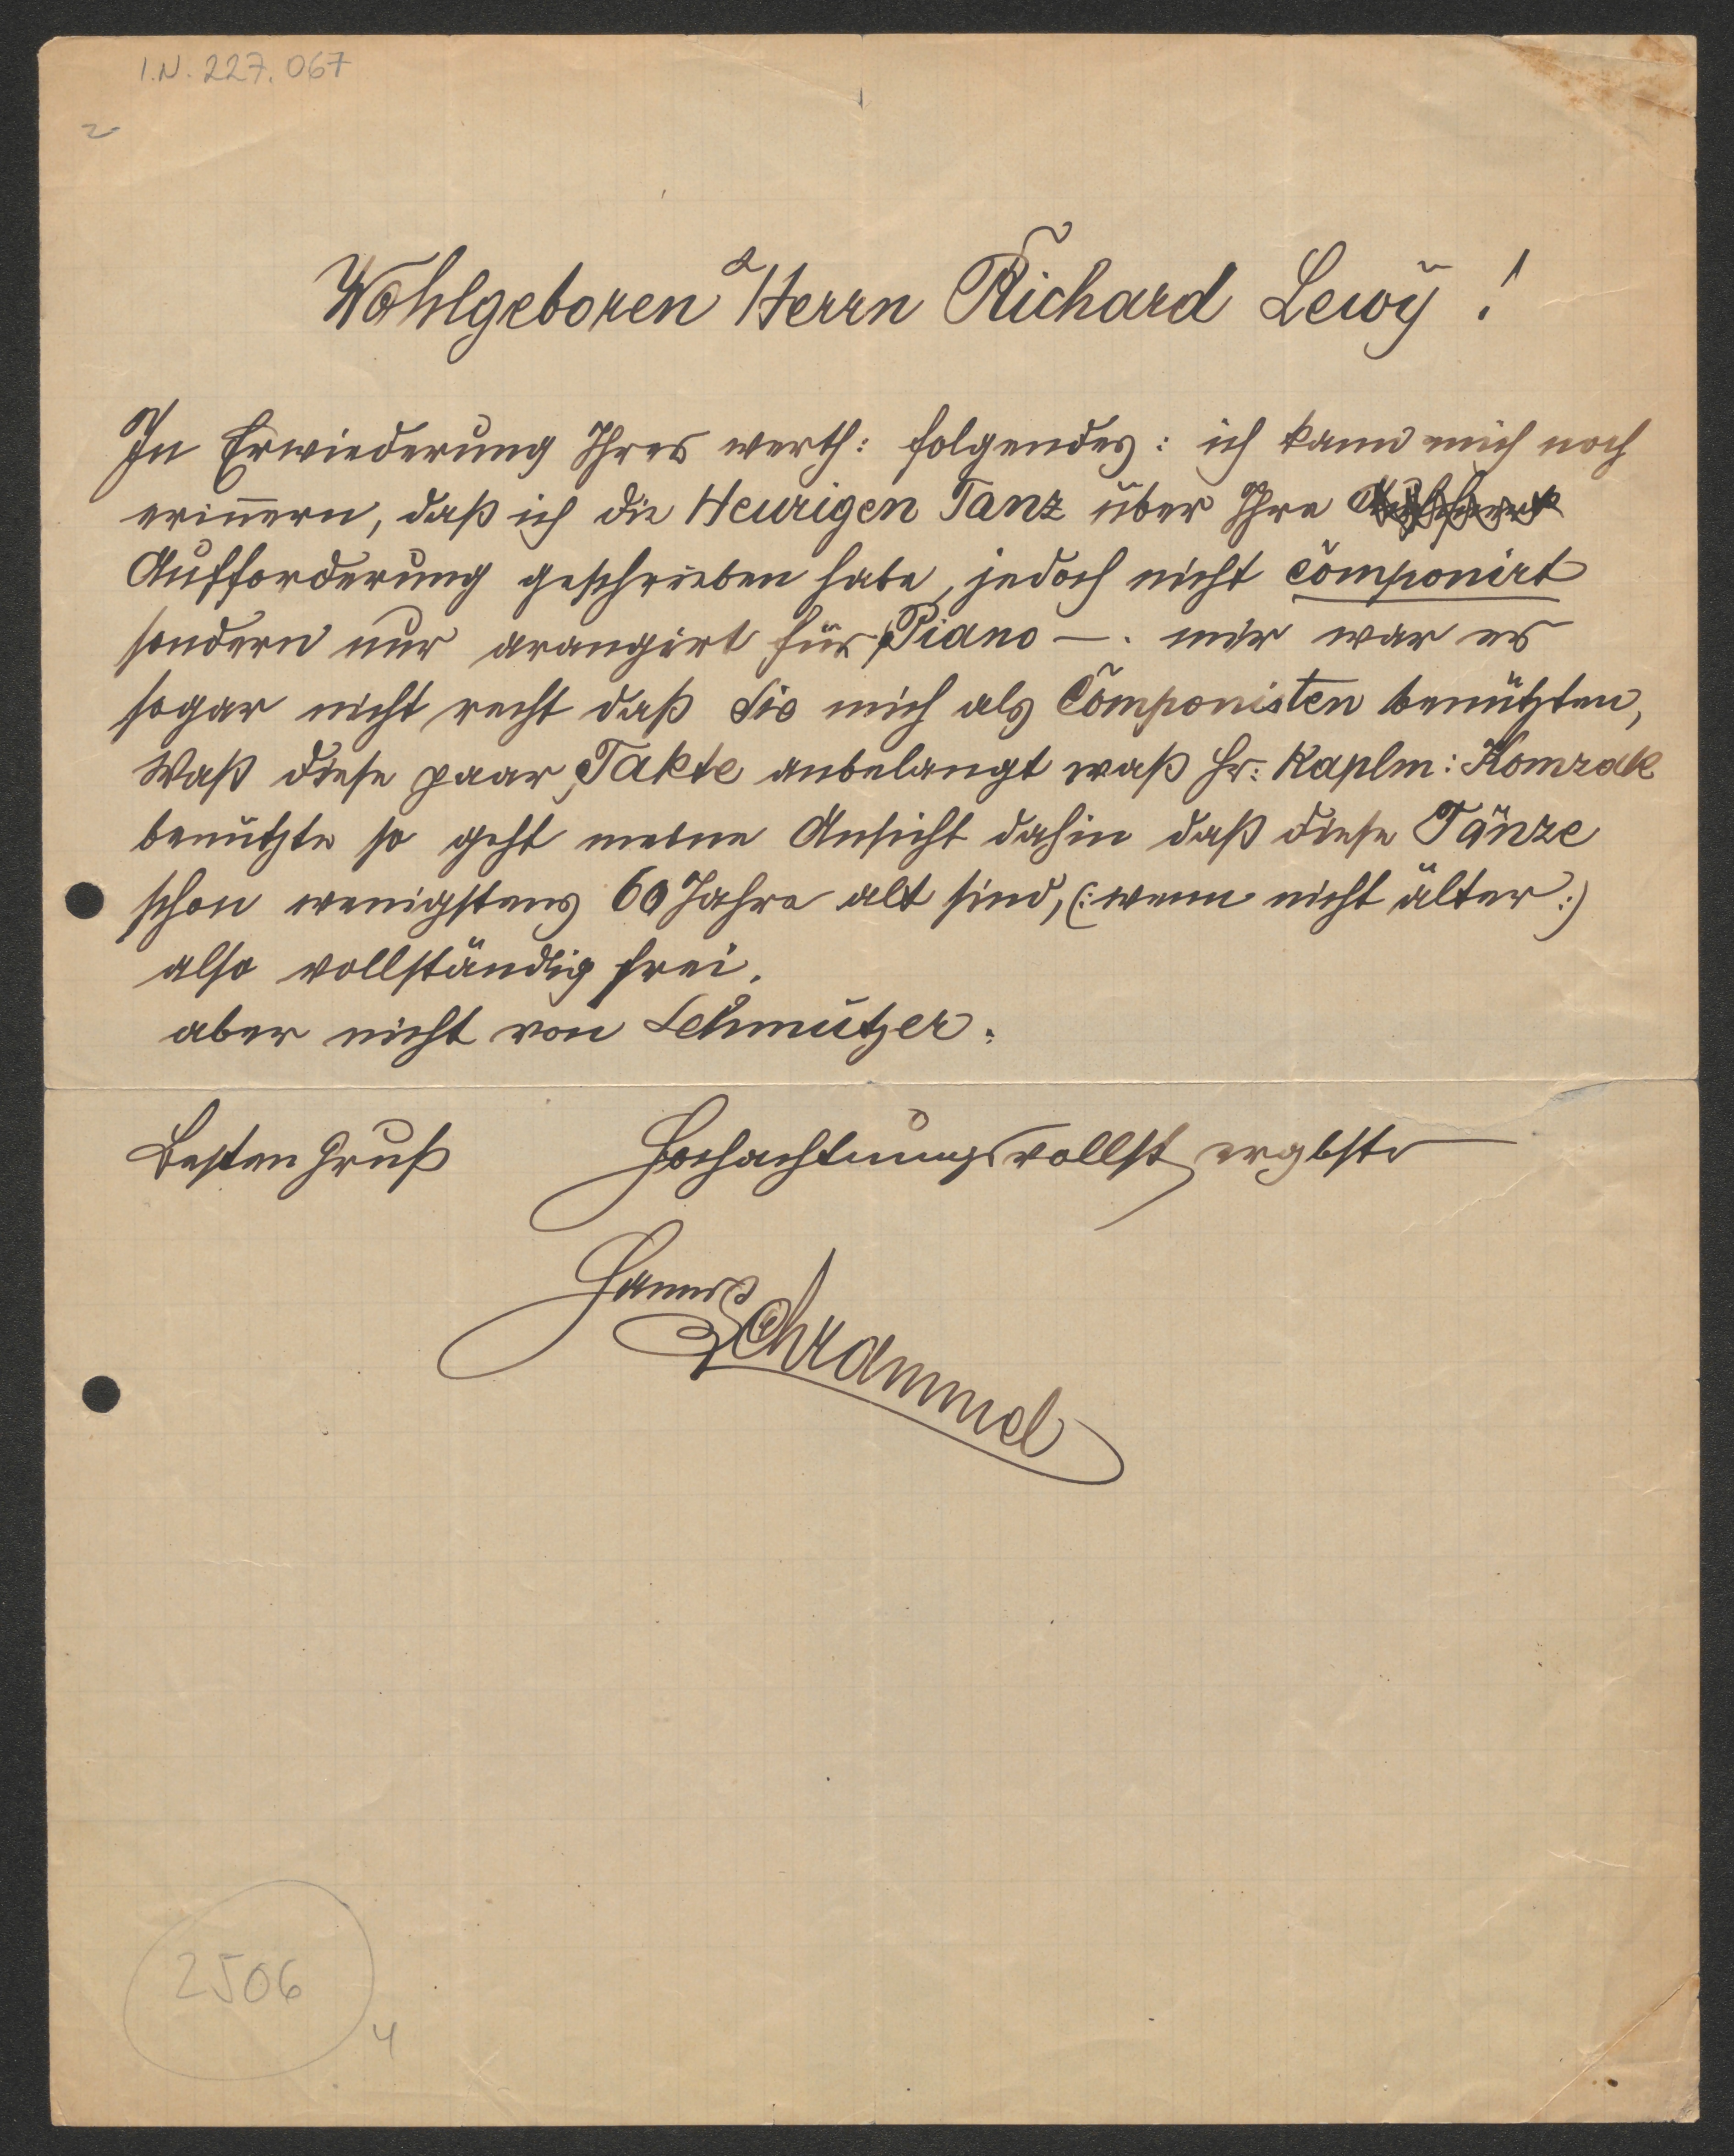 I.N. 227.067
2
Wohlgeboren Herrn Richard Lewÿ!
In Erwiederung Ihres werth: folgendes: ich kann mich noch
erinnern, daß ich die Heurigen Tanz über Ihre
Aufforderung geschrieben habe, jedoch nicht componirt
sondern nur arangirt für Piano —. mir war es
sogar nicht recht daß Sie mich als Componisten benützten,
Waß diese paar Takte anbelangt waß Hr: Kaplm: Komzak
benützte so geht meine Ansicht dahin daß diese Tänze
schon wenigstens 60 Jahre alt sind, (: wenn nicht älter :)
also vollständig frei.
aber nicht von Schmutzer.
Besten Gruß Hochachtungsvollst ergbste
Hanns
Schrammel
2506
4